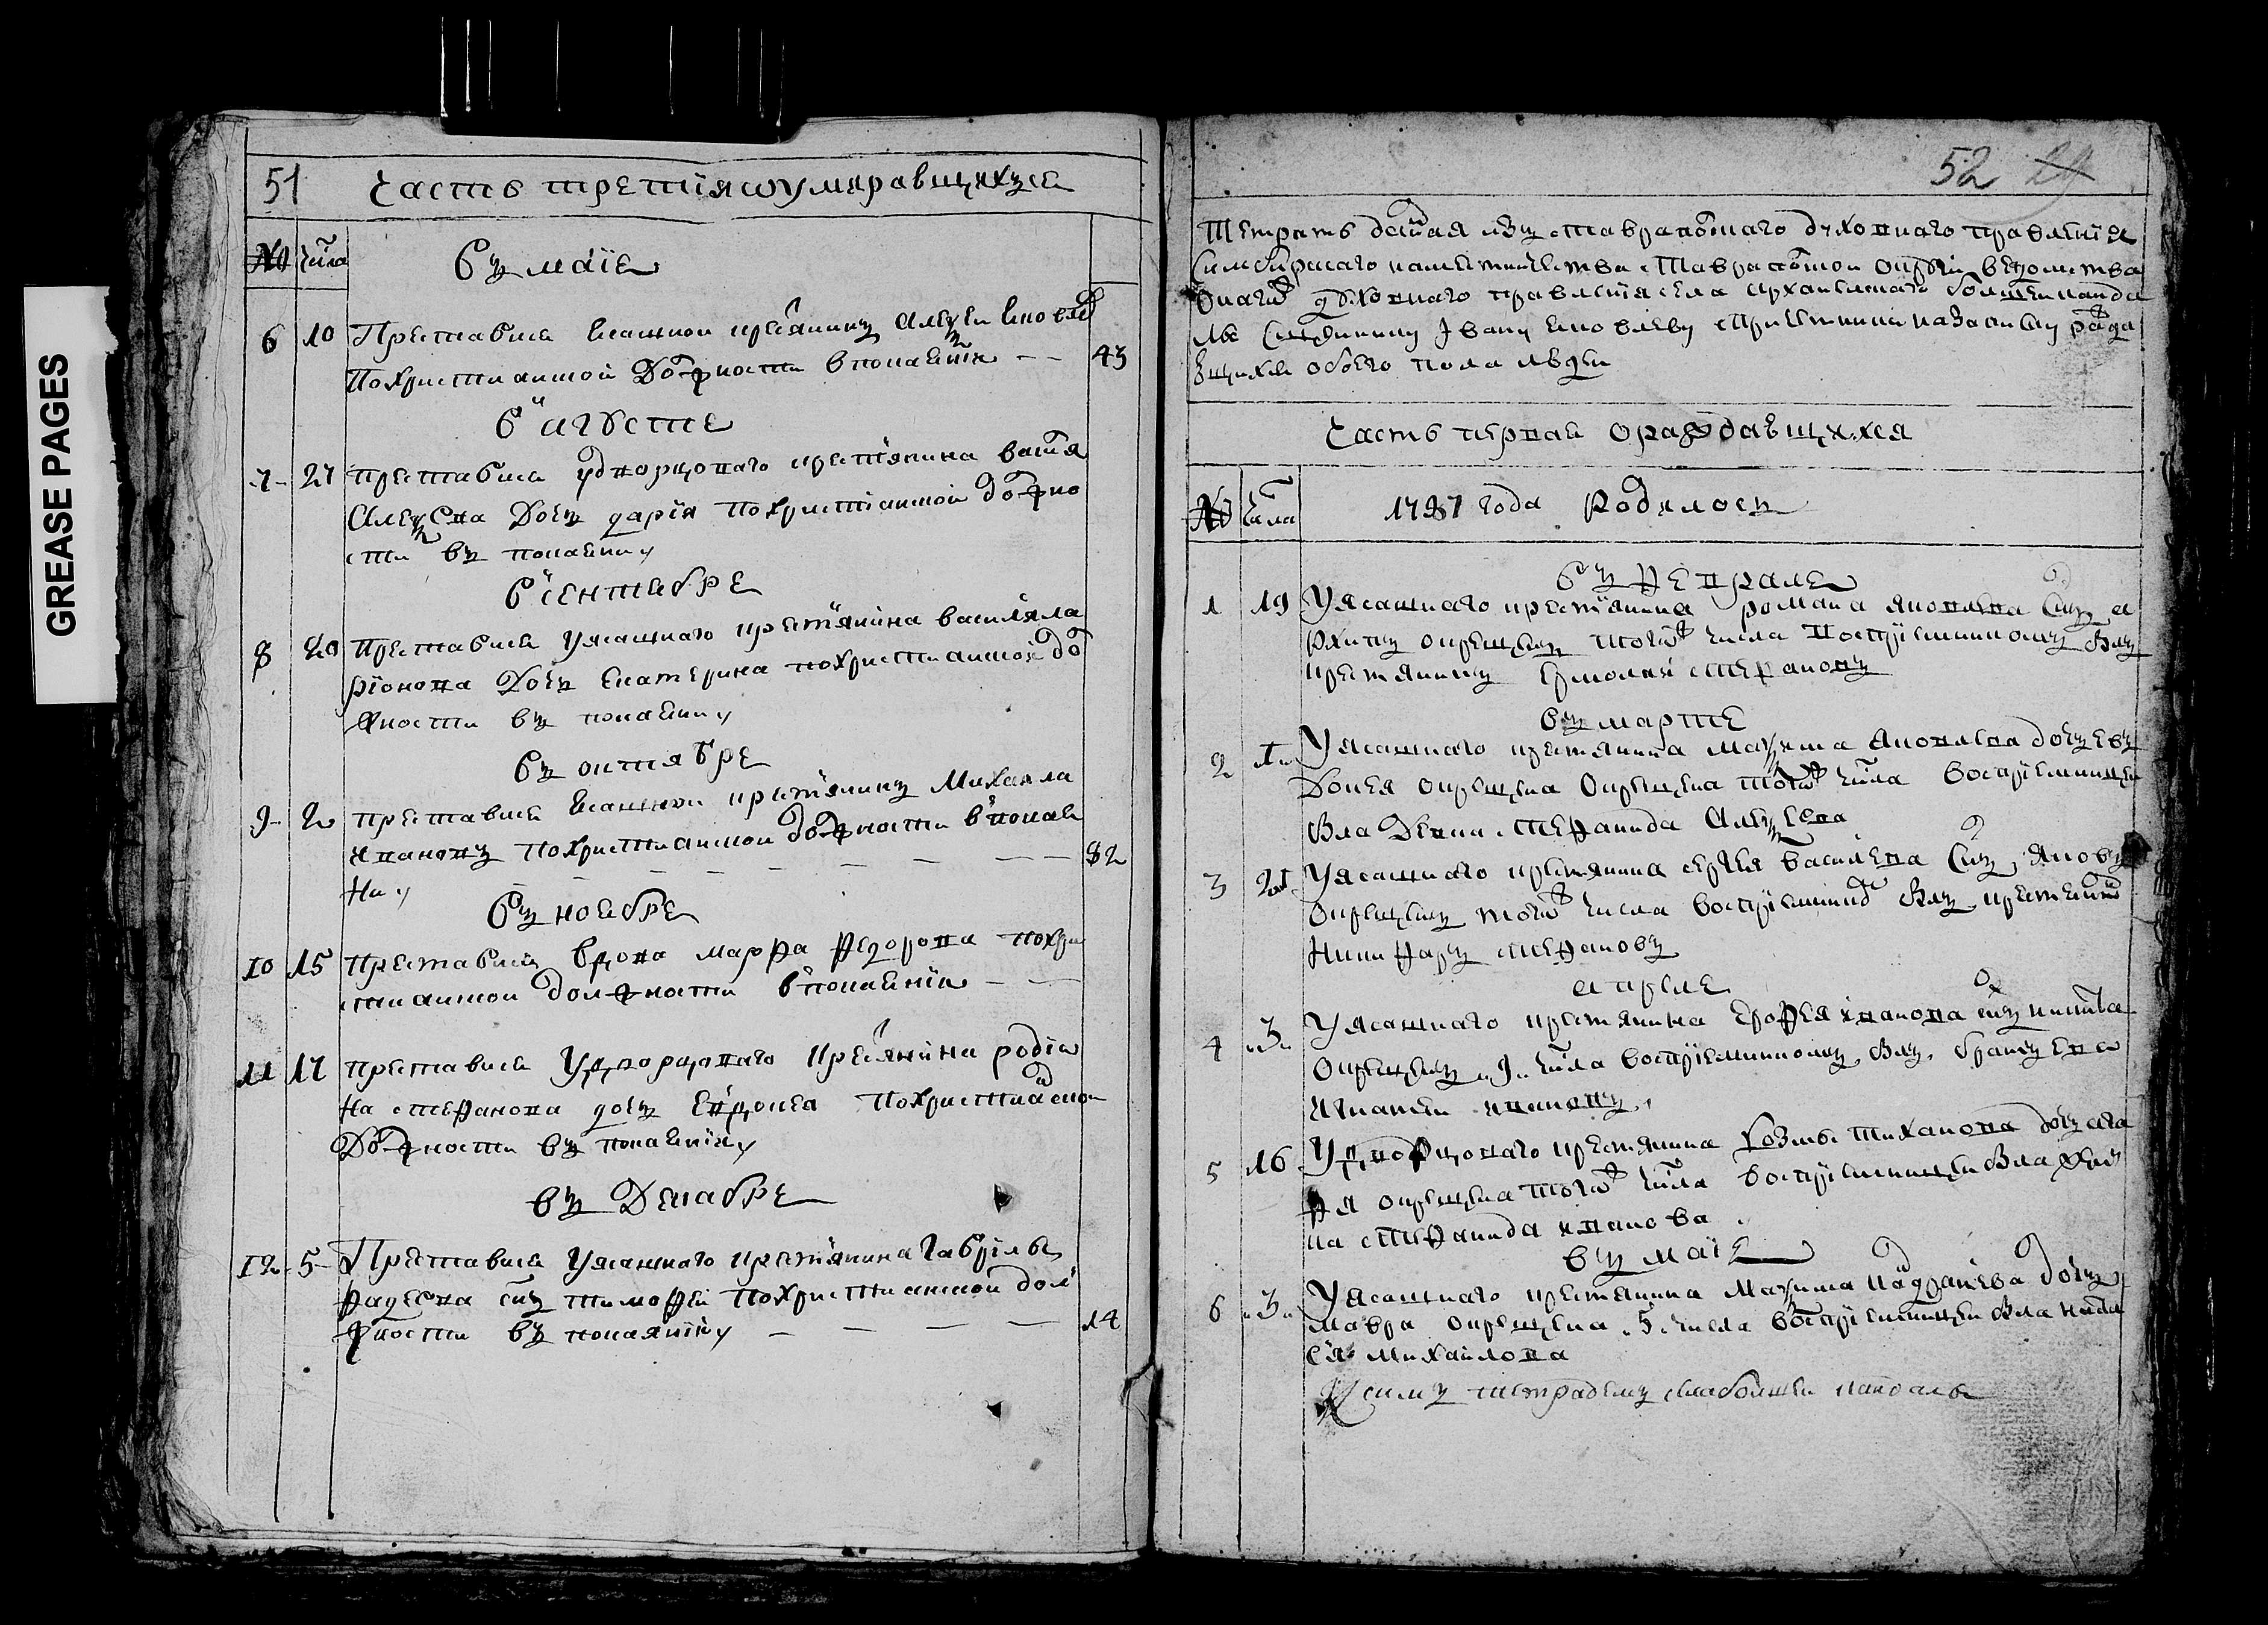 GREASE PAGES
51 Часть третія ѡ умиравщихъся
№ числа
Въ маїе
6 10 Преставися ясашной крестянинъ Алеѯѣй Яковлев
По христианской должности в покаянїи 43
В августе
7 27 преставися удворцоваго крестїянина васїля
Алеѯѣева дочь дарїя По христїанской должно
сти въ покаянии
В сентебре
8 20 Преставися уясашнаго крестїянина василяла
рїонова Дочь Екатерина по христианской до
лжности въ покаянии
Въ октябре
9 2 преставися ясашнои крестїянинъ Михаила
ивановъ По христианской должности в покая
нии 82
Въ ноебре
10 15 Преставися вдова марфа федорова по хри
стианской должности в покаянїи
11 17 преставися Удворцоваго Крестянина родїо
на стефанова дочь Евдокея По христианской
Должности въ покаянїи
въ Декабре
12 5 Преставися Уясашнаго крестїянина Гаврилы
фадеева сынъ тимофей по христианской дол
жности въ покаянїи 14
52 29
Тетрать даная изъ ставрапольскаго духовнаго правленїя
Симбирскаго наместничества ставрапольской округи ведомства
онаго духовнаго правленїя села архангельскаго
священнику Iвану Яковлеву на записку рожда
ющихся обоего пола людеи
Часть первая о раждавщихся
№ числа 1787 года Родилось
Въ Феврале
1 19 Уясашнаго крестїянина романа яковлева сынъ а
рхипъ окрещенъ того числа воспрїемникомъ былъ
крестянинъ Ермолай стефановъ
въ марте
2 1 Уясашнаго крестянина маѯима Яковлева дочь Ев
Докея окрещена окрещена того числа воспрїемницеи
была Девка стефанида Алеѯѣева
3 21 Уясашнаго крестянина сергея васильева сынъ Яковъ
окрещенъ того числа воспрїемникъ былъ крестянинъ
Никифаръ стефановъ
апреле
4 3 Уясашнаго крестянина ерофея иванова сынъ никита
окрещенъ 9 числа воспрїемникомъ былъ братъ ево
игнатеи ивановъ
5 16 Удворцоваго крестянина козмы тиханова дочь ага
фя окрещена того числа воспрїемницеи была
на стефанида иванова
въ маїе
6 3 Уясашнаго крестянина Маѯима кадрачева дочь
мавра окрещена 5 числа воспрїемницеи была
михайлова
К симъ тетрадемъ